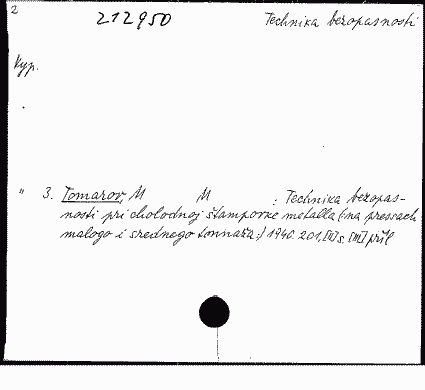 2
212950 Technika bezopasnosti
Vyp.
" 3. Tomarov, M M : Technika bezopas-
nosti pri cholodnoj štampovke metalla (:na pressach
malogo i srednego tonnaža:) 1946. 201,[II] s. [III] příl